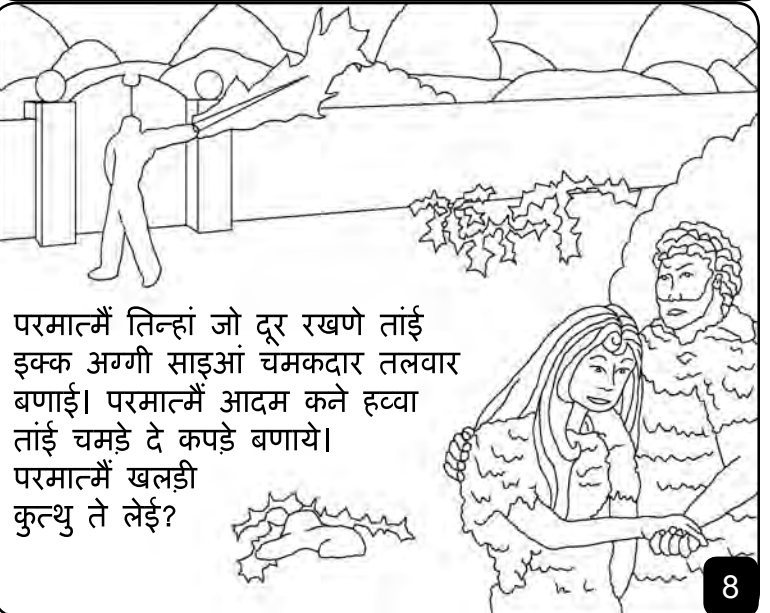 परमात्मैं तिन्हां जो दूर रखणे तांई
इक्क अग्गी साइआं चमकदार तलवार
बणाई। परमात्मैं आदम कने हव्वा
तांई चमड़े दे कपड़े बणाये।
परमात्मैं खलड़ी
कुत्थु ते लेई?
8